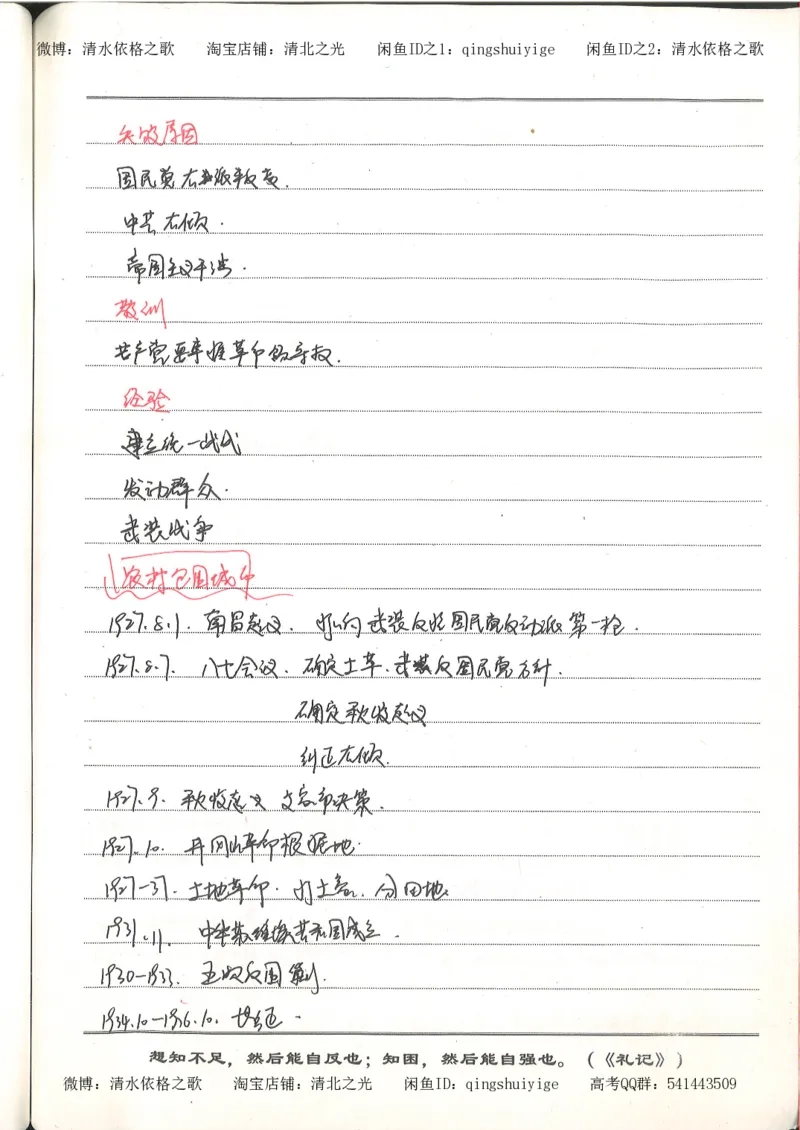 微博：清水依格之歌 淘宝店铺：清北之光 闲鱼ID之1：qingshuiyige 闲鱼ID之2：清水依格之歌
失败原因
国民党右派叛变.
中共右倾.
帝国主义干涉.
教训
共产党要掌握革命领导权.
经验
建立统一战线
发动群众.
武装战争
农村包围城市
1927.8.1. 南昌起义. 打响武装反抗国民党反动派第一枪.
1927.8.7. 八七会议. 确定土革.武装反国民党方针.
确定秋收起义
纠正右倾.
1927.9. 秋收起义 文家市决策.
1927.10. 井冈山革命根据地.
1927-37. 土地革命. 打土豪. 分田地
1931.11. 中华苏维埃共和国成立.
1930-1933. 五次反围剿.
1934.10-1936.10. 长征.
想知不足，然后能自反也；知困，然后能自强也。（《礼记》）
微博：清水依格之歌 淘宝店铺：清北之光 闲鱼ID：qingshuiyige 高考QQ群：541443509